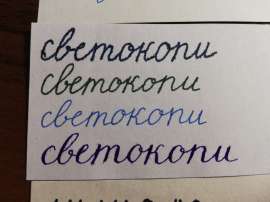 светокопи
светокопи
светокопи
светокопи